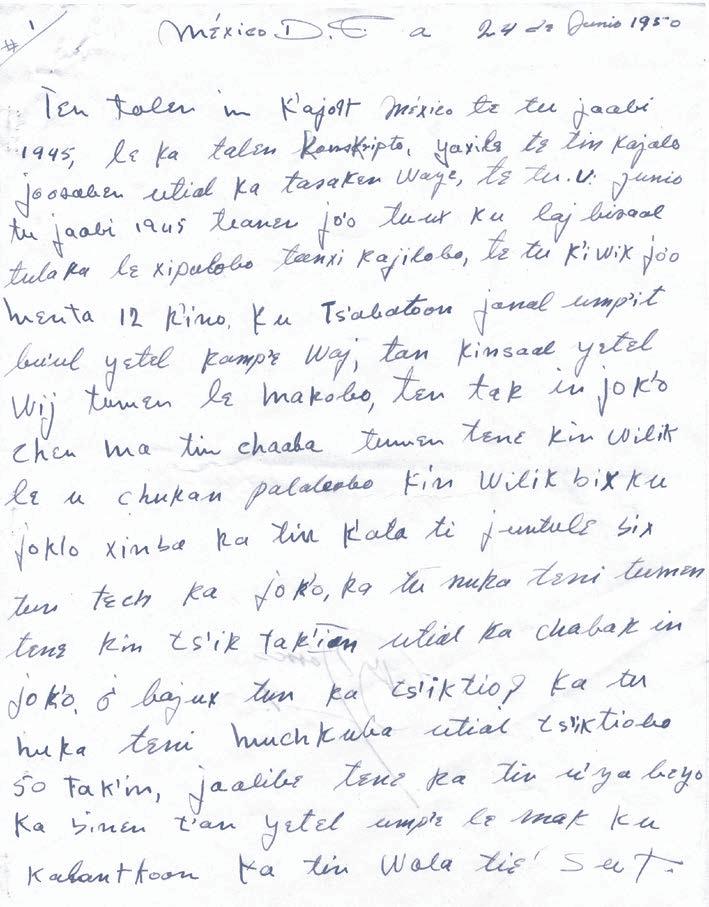 #1
México D.F. a 24 de Junio 1950
Ten talen in K'ajolt México te tu jaabi
1945, le ka talen Konskripto, yaxile te tin Kajalo
joosaben utial ka tasaken Waye, te tu.v. junio
tu jaabi 1945 teanen jo'o tuux ku laj bisaal
tulaka le xipalobo tanxi kajilobo, te tu K'i wik jo'o
menta 12 K'ino, Ku Ts'abatoon janal ump'it
bu'ul yetel kamp'e Waj, tan Kinsaal yetel
Wij tumen le makobo, ten tak in jok'o
chen ma tin chaaba tumen tene kin wilik
le u chukan palaleobo kin Wilik bix ku
joklo xinba ka tin K'ata ti juntule bix
tun tech ka jok'o, ka tu nuka teni tumen
tene kin ts'ik tak'ien utial ka chabak in
jok'o, ó bajux tun ka ts'iiktio? ka tu
nuka teni muchkuba utial ts'iiktiobo
50 tak'in, jaalibe tene ka tin u'ya beyo
ka binen t'an yetel ump'e le mak ku
kalantkoon ka tin Wala tie'